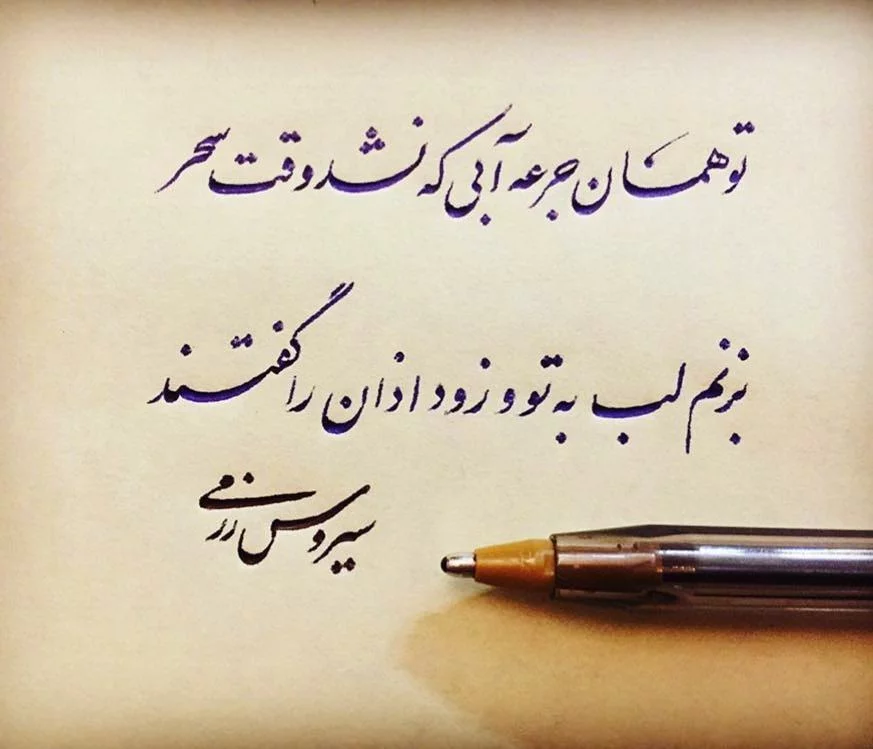 تو همان جرعه آبی که نشد وقت سحر
بزنم لب به تو و زود اذان را گفتند
سیروس رزمی